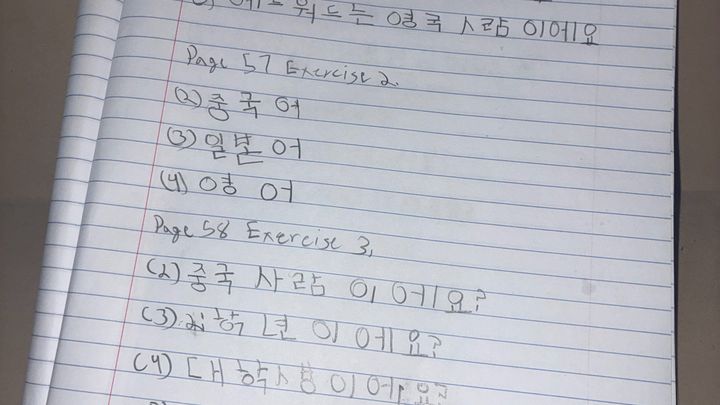 에드워드는 영국 사람 이에요
Page 57 Exercise 2.
(2) 중국 어
(3) 일본 어
(4) 영 어
Page 58 Exercise 3.
(2) 중국 사람 이 에요?
(3) 학년 이 에요?
(4) 대학생 이에요?